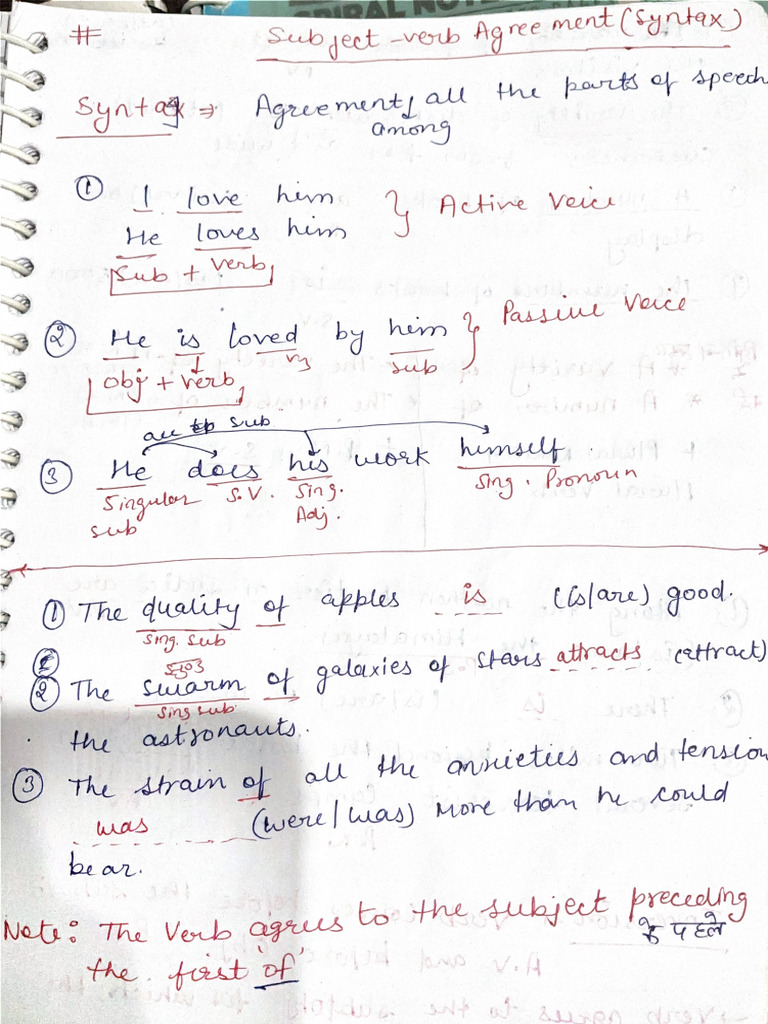 SPIRAL NOTE
# Subject-verb Agreement (Syntax)
Syntax → Agreement all the parts of speech
among
① I love him } Active Voice
He loves him
Sub + Verb
② He is loved by him } Passive Voice
Obj + Verb V3 sub
all sub
③ He does his work himself.
Singular S.V. Sing. Sing. Pronoun
Sub Adj.
① The quality of apples is (is/are) good.
Sing. Sub
② The swarm of galaxies of stars attracts (attract)
Sing sub
the astronauts.
③ The strain of all the anxieties and tension
was (were/was) more than he could
bear.
Note: The Verb agrees to the subject preceding
के पहले
the first 'of'